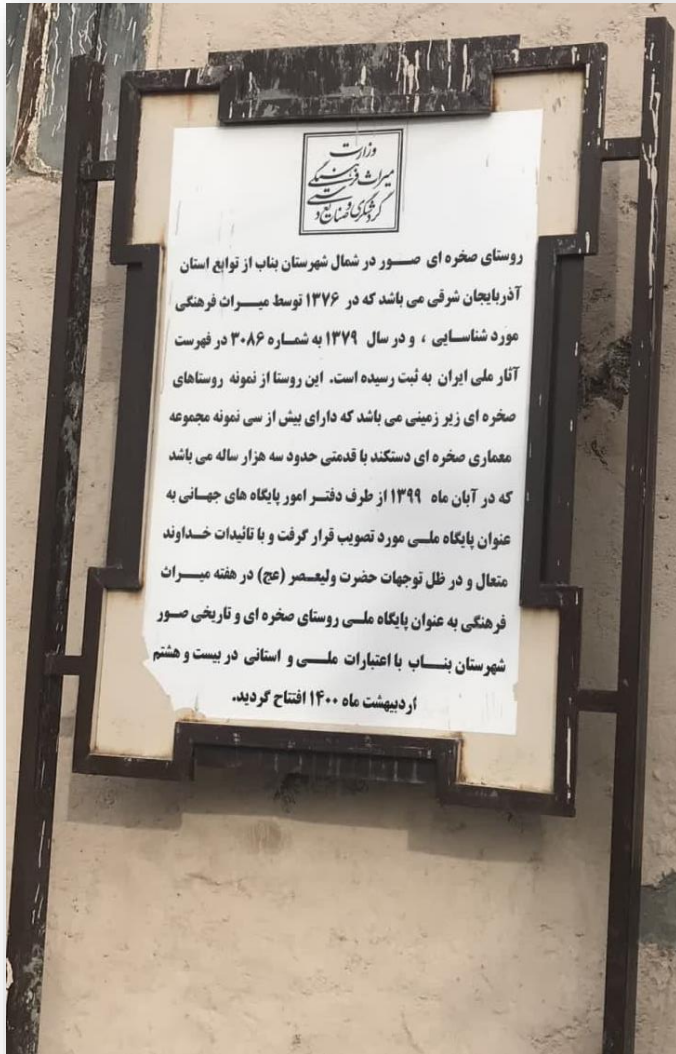 وزارت
میراث فرهنگی
گردشگری و صنایع دستی
روستای صخره ای صور در شمال شهرستان بناب از توابع استان
آذربایجان شرقی می باشد که در ۱۳۷۶ توسط میراث فرهنگی
مورد شناسایی ، و در سال ۱۳۷۹ به شماره ۳۰۸۶ در فهرست
آثار ملی ایران به ثبت رسیده است. این روستا از نمونه روستاهای
صخره ای زیر زمینی می باشد که دارای بیش از سی نمونه مجموعه
معماری صخره ای دستکند با قدمتی حدود سه هزار ساله می باشد
که در آبان ماه ۱۳۹۹ از طرف دفتر امور پایگاه های جهانی به
عنوان پایگاه ملی مورد تصویب قرار گرفت و با تائیدات خداوند
متعال و در ظل توجهات حضرت ولیعصر (عج) در هفته میراث
فرهنگی به عنوان پایگاه ملی روستای صخره ای و تاریخی صور
شهرستان بناب با اعتبارات ملی و استانی در بیست و هشتم
اردیبهشت ماه ۱۴۰۰ افتتاح گردید.